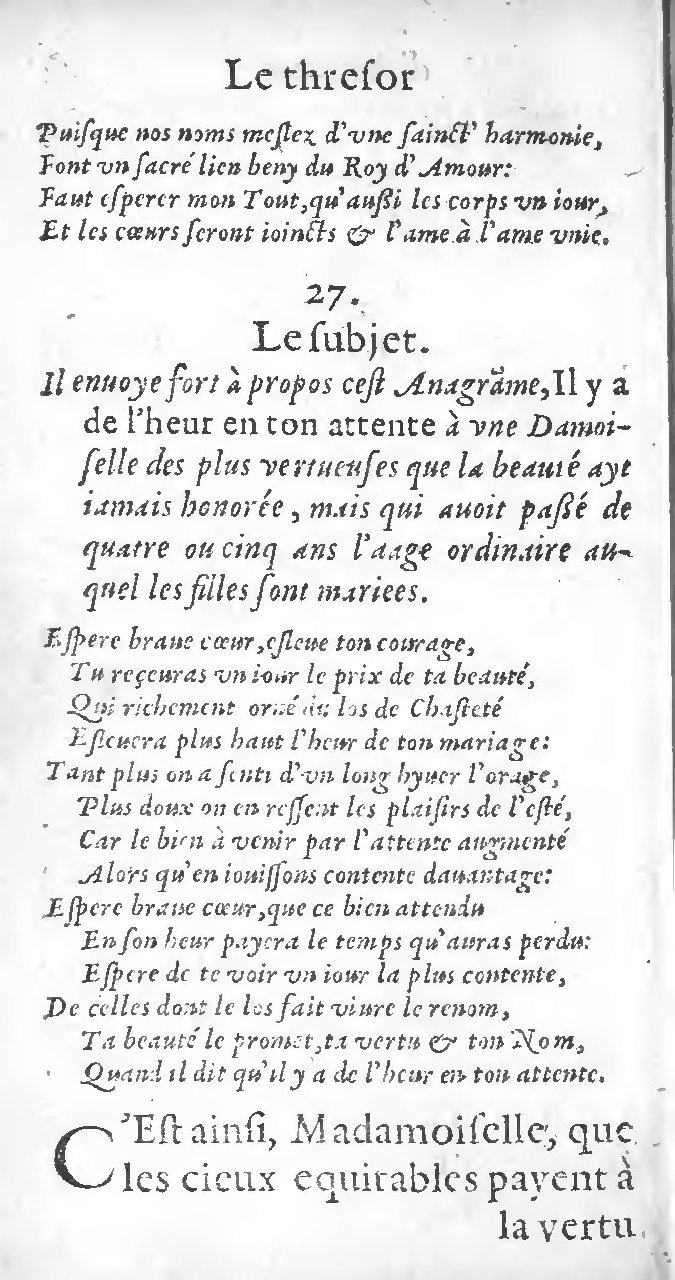 Le threſor
Puiſque nos noms meſlez d'vne ſainct' harmonie,
Font vn ſacré lien beny du Roy d'Amour:
Faut eſperer mon Tout, qu'auſſi les corps vn iour,
Et les cœurs ſeront ioincts & l'ame à l'ame vnie.
27.
Le ſubjet.
Il enuoye fort à propos ceſt Anagrāme, Il y a
de l'heur en ton attente à vne Damoi-
ſelle des plus vertueuſes que la beauté ayt
iamais honorée, mais qui auoit paſſé de
quatre ou cinq ans l'aage ordinaire au-
quel les filles ſont mariees.
Eſpere braue cœur, eſleue ton courage,
Tu reçeuras vn iour le prix de ta beauté,
Qui richement orné du los de Chaſteté
Eſleuera plus haut l'heur de ton mariage:
Tant plus on a ſenti d'vn long hyuer l'orage,
Plus doux on en reſſent les plaiſirs de l'eſté,
Car le bien à venir par l'attente augmenté
Alors qu'en iouiſſons contente dauantage:
Eſpere braue cœur, que ce bien attendu
En ſon heur payera le temps qu'auras perdu:
Eſpere de te voir vn iour la plus contente,
De celles dont le los fait viure le renom,
Ta beauté le promet, ta vertu & ton Nom,
Quand il dit qu'il y a de l'heur en ton attente.
C'Eſt ainſi, Madamoiſelle, que
les cieux equitables payent à
la vertu